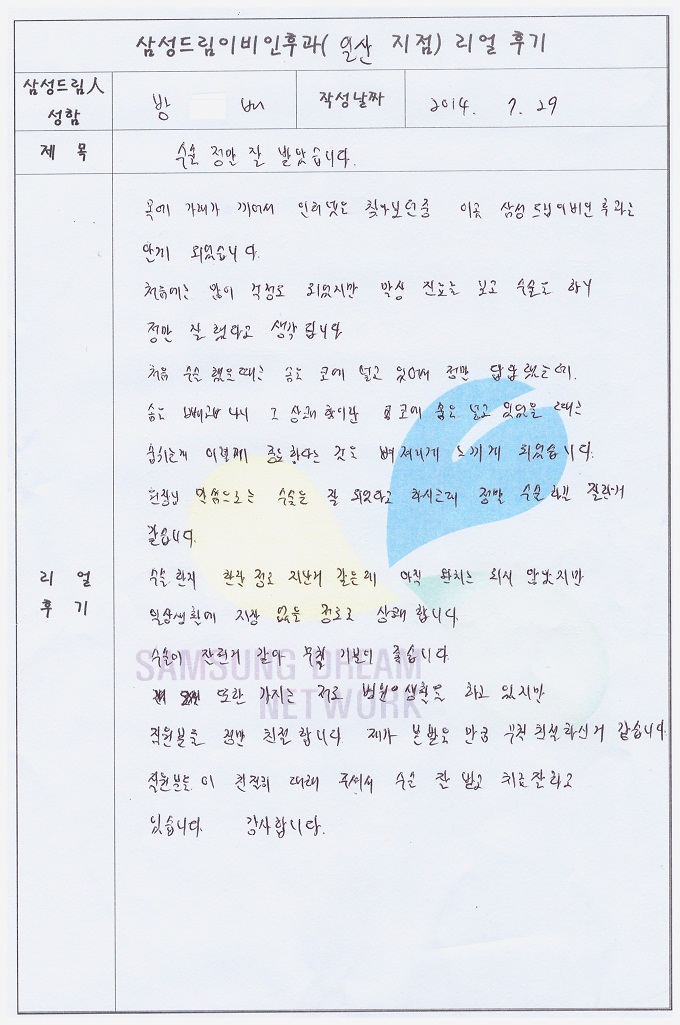 삼성드림이비인후과( 일산 지점) 리얼 후기
삼성드림人 성함
방 배
작성날짜
2014. 7. 29
제 목
수술 정말 잘 받았습니다.
리 얼
후 기
목에 가래가 끼어서 인터넷으로 찾아보던중 이곳 삼성드림이비인후과를
알게 되었습니다.
처음에는 많이 걱정도 되었지만 막상 진료를 보고 수술도 하니
정말 잘 했다고 생각 됩니다
처음 수술 했을때는 솜을 코에 넣고 있어서 정말 답답했는데.
솜을 빼고나니 그 상쾌함이란 코에 솜을 넣고 있었을 때는
숨쉬는게 이렇게 중요하다는 것을 뼈저리게 느끼게 되었습니다.
원장님 말씀으로는 수술을 잘 되었다고 하시는데 정말 수술 하길 잘한거
같습니다.
수술 한지 한달 정도 지난거 같은데 아직 완치는 되지 않았지만
일상생활에 지장 없을 정도로 상쾌 합니다.
수술이 잘된거 같아 무척 기분이 좋습니다
또한 가지는 저도 병원생활을 하고 있지만
직원분들 정말 친절 합니다 제가 본받을 만큼 무척 친절하신거 같습니다.
직원분들이 친절히 대해 주셔서 수술 잘 받고 치료 잘하고
있습니다. 감사합니다.
SAMSUNG DREAM
NETWORK